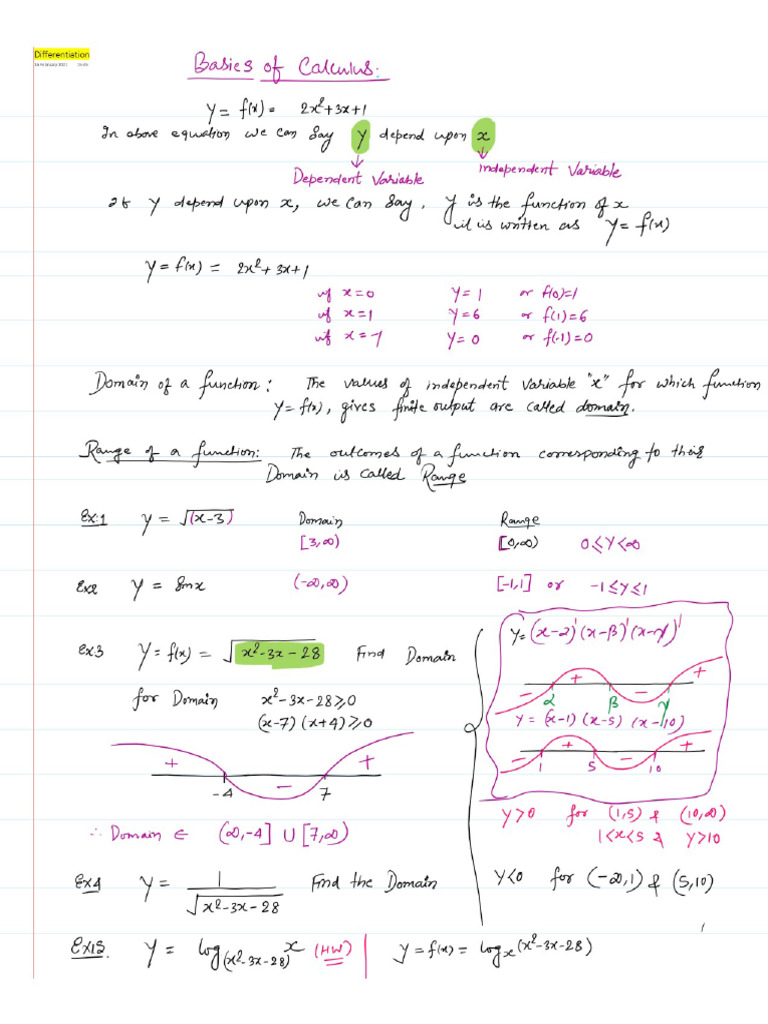 Differentiation
Basics of Calculus:
y = f(x) = 2x²+3x+1
In above equation we can say y depend upon x
Dependent Variable
independent Variable
If y depend upon x, we can say, y is the function of x
it is written as y = f(x)
y = f(x) = 2x²+3x+1
if x=0 y=1 or f(0)=1
if x=1 y=6 or f(1)=6
if x=-1 y=0 or f(-1)=0
Domain of a function: The values of independent variable "x" for which function
y = f(x), gives finite output are called domain.
Range of a function: The outcomes of a function corresponding to their
Domain is called Range
Ex:1 y = √(x-3) Domain Range
[3,∞) [0,∞) 0≤y<∞
Ex2 y = sinx (-∞,∞) [-1,1] or -1≤y≤1
Ex3 y = f(x) = √x²-3x-28 Find Domain
for Domain x²-3x-28≥0
(x-7)(x+4)≥0
+ - +
-4 7
∴ Domain ∈ (∞,-4] ∪ [7,∞)
y = (x-α)¹(x-β)¹(x-γ)¹
- + - +
α β γ
y = (x-1)(x-5)(x-10)
- + - +
1 5 10
y>0 for (1,5) & (10,∞)
1<x<5 & y>10
y<0 for (-∞,1) & (5,10)
Ex4 y = 1/√x²-3x-28 Find the Domain
Ex13. y = log(x²-3x-28) x (HW) | y = f(x) = logx(x²-3x-28)